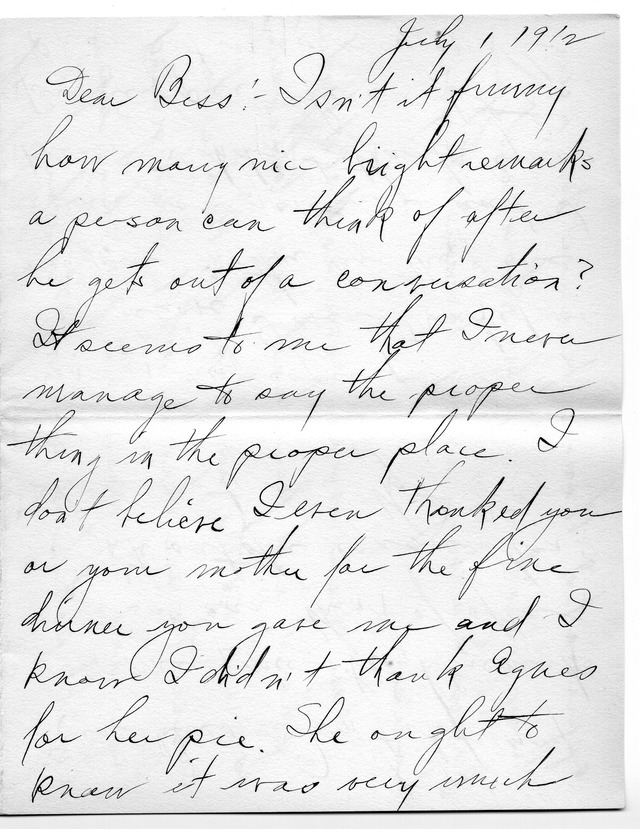 July 1, 1912
Dear Bess:- Isn't it funny
how many nice bright remarks
a person can think of after
he gets out of a conversation?
It seems to me that I never
manage to say the proper
thing in the proper place. I
don't believe I even thanked you
or your mother for the fine
dinner you gave me and I
know I didn't thank Agnes
for her pie. She ought to
know it was very much